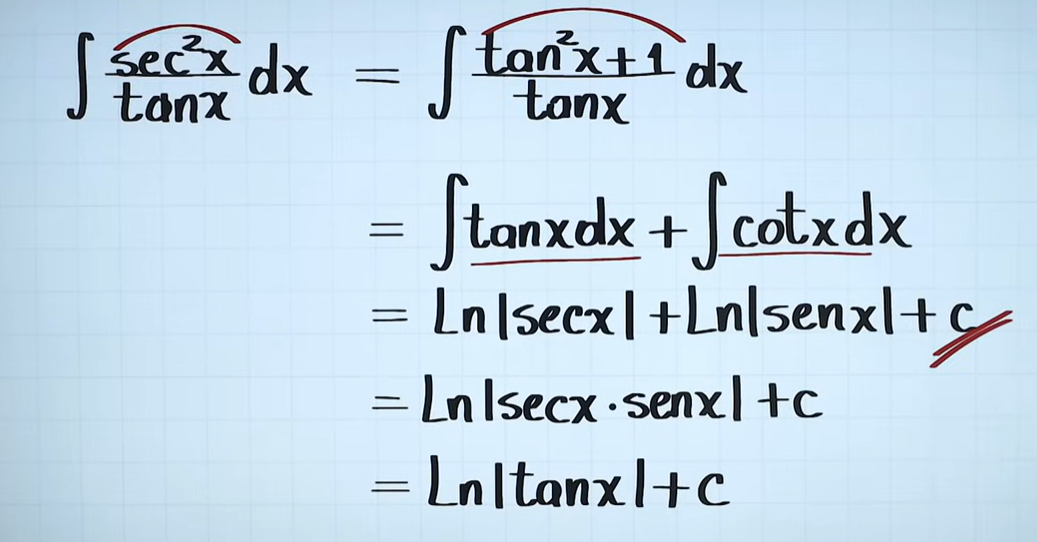 ∫ sec²x/tanx dx = ∫ tan²x+1/tanx dx
= ∫tanxdx + ∫cotxdx
= Ln|secx| + Ln|senx| + c
= Ln|secx·senx| + c
= Ln|tanx| + c